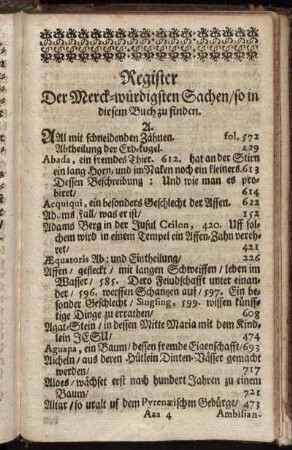 Register
Der Merck-würdigsten Sachen/ so in
diesem Buch zu finden.
A.
AAl mit schneidenden Zähnen. fol. 572
Abtheilung der Erd-kugel. 229
Abada, ein fremdes Thier. 612. hat an der Stirn
ein lang Horn/ und im Naken noch ein kleiners. 613
Dessen Beschreibung: Und wie man es pro-
biret/ 614
Acquiqui, ein besonders Geschlecht der Affen. 622
Adams Fall/ was er ist/ 152
Adams Berg in der Insul Ceilon, 420. Uff sol-
chem wird in einem Tempel ein Affen-Zahn vereh-
ret/ 421
Æquatoris Ab: und Eintheilung/ 226
Affen/ gesleckt/ mit langen Schweiffen/ leben im
Wasser/ 585. Dero Feindschafft unter einan-
der/ 596. werffen Schangen auf/ 597. Ein be-
sonder Geschlecht/ Singsing, 599. wissen künff-
tige Dinge zu errathen/ 608
Agat-Stein/ in dessen Mitte Maria mit dem Kind-
lein JESU/ 474
Aguapa, ein Baum/ dessen fremde Eigenschafft/ 693
Aicheln/ aus deren Hütlein Dinten-Vässer gemacht
werden/ 717
Aloes/ wächset erst nach hundert Jahren zu einem
Baum/ 721
Altar/ so uralt uf dem Pyrenæischen Gebürge/ 473
Aaa 4 Ambisian-